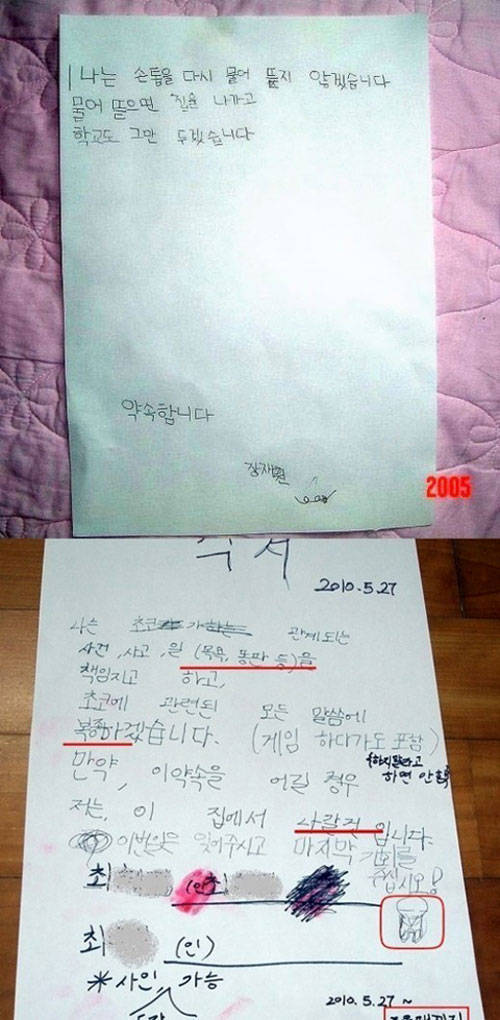 나는 손톱을 다시 물어 뜯지 않겠습니다
물어 뜯으면 집을 나가고
학교도 그만 두겠습니다
약속합니다
장재원
2005
각서
2010.5.27
나는 초코 관계되는
사건, 사고, 일 (목욕, 똥판 등)을
책임지고 하고,
초코에 관련된 모든 말씀에
복종하겠습니다. (게임 하다가도 포함)
만약, 이약속을 어길 경우 하면 안
저는, 이 집에서 나갈것 입니다.
이번일은 잊어주시고 마지막 기회를
주십시오!
최 (인) 최
최 (인)
*사인, 가능
2010.5.27 ~